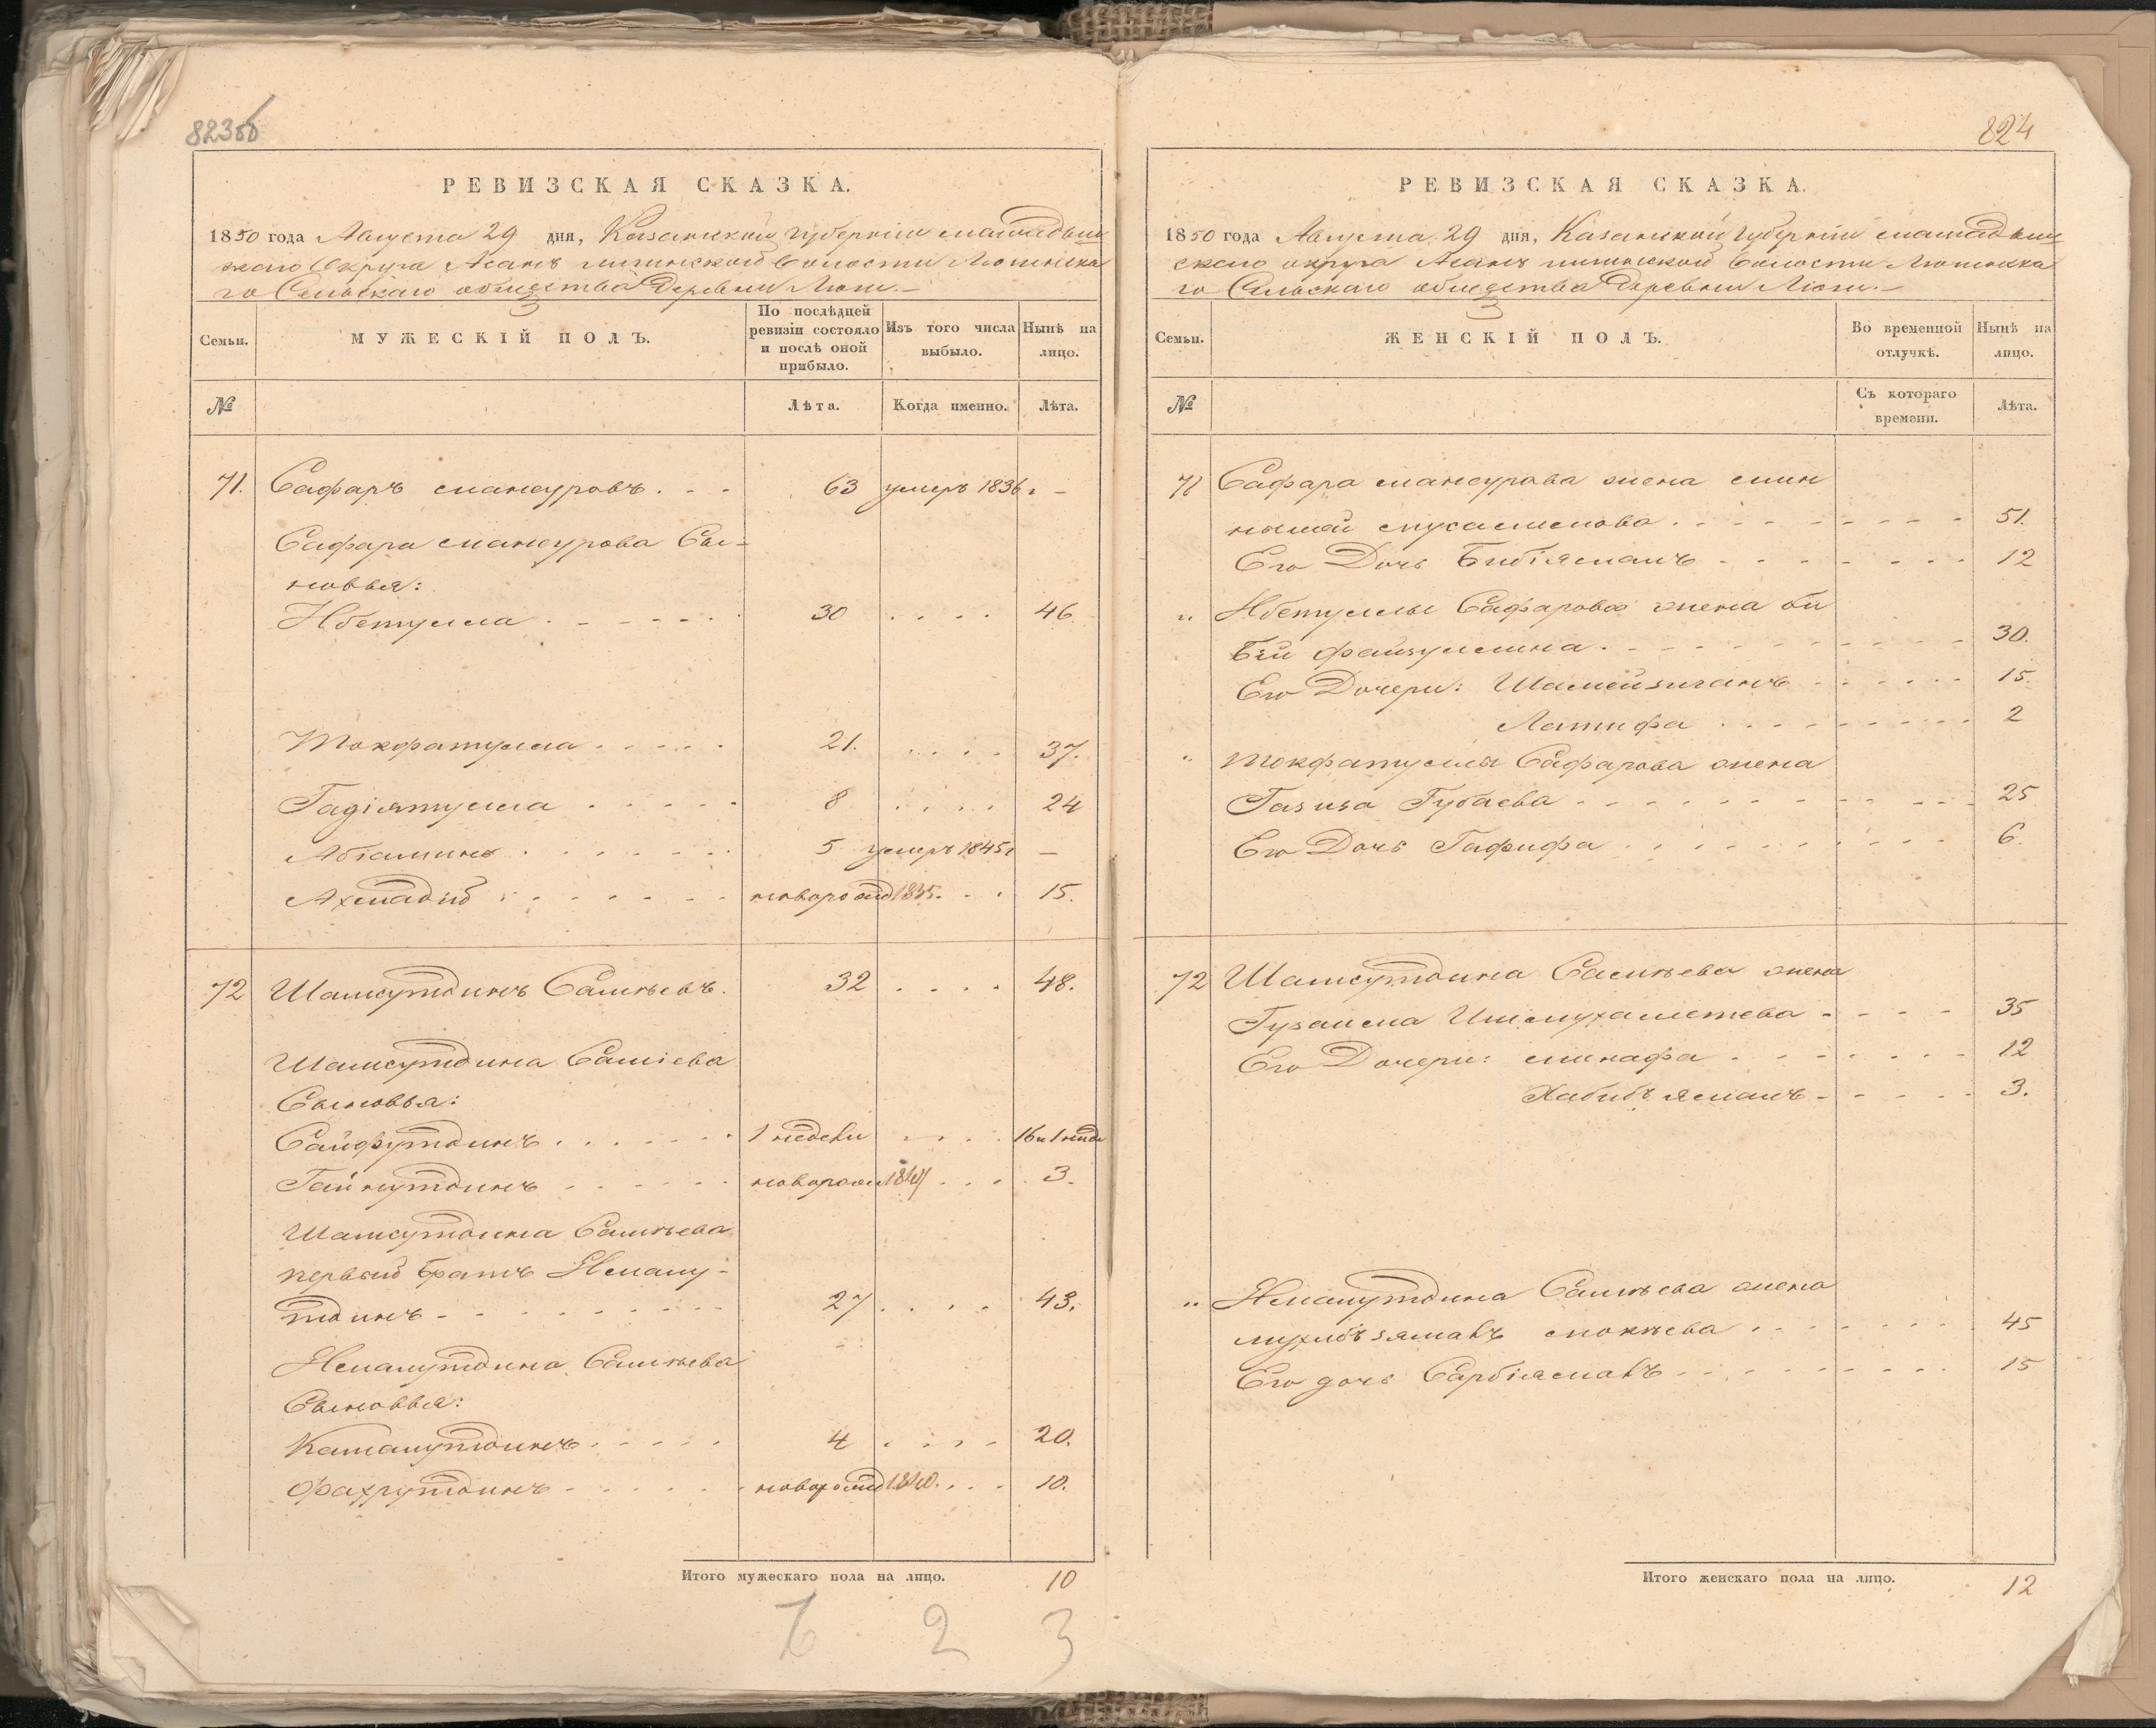 823об
РЕВИЗСКАЯ СКАЗКА.
1850 года Августа 29 дня, Казанской губерніи мамадыш
скаго Округа Асанъ волости
го Сельскаго общества Деревни Люги.
Семьи.
МУЖЕСКІЙ ПОЛЪ.
По послѣдней ревизіи состояло и послѣ оной прибыло.
Изъ того числа выбыло.
Нынѣ на лицо.
№
Лѣта.
Когда именно.
Лѣта.
71. Сафаръ мансуровъ. 63 умеръ 1836г. –
Сафара мансурова Сы-
новья:
Ибетулла 30 46.
Токфатулла 21. 37.
Гадіятулла 8 24
Абіаминъ 5 умеръ 1845г –
Ахмадій новорожд 1835. 15.
72 Шамсутдинъ Салиѣевъ. 32 48.
Шамсутдина Саліева
Сыновья:
Сайфутдинъ 1 недели 16 и 1 неде
Гайнутдинъ новорож 1847 3.
Шамсутдина Салиѣева
первый братъ Немалу-
тдинъ 27 43.
Немалутдина Салиѣева
Сыновья:
Камалутдинъ 4 20.
Фахрутдинъ новорожд 1840. 10.
Итого мужескаго пола на лицо. 10
7 2 3
824
РЕВИЗСКАЯ СКАЗКА.
1850 года Августа 29 дня, Казанской губерніи мамадыш
скаго округа Асанъ волости
го Сельскаго общества Деревни Люги.
Семьи.
ЖЕНСКІЙ ПОЛЪ.
Во временной отлучкѣ.
Нынѣ на лицо.
№
Съ котораго времени.
Лѣта.
71 Сафара мансурова жена мин
нымай 51.
Его Дочь Бибіямалъ 12
" Ибетуллы Сафарова жена би
бъи файзуллина 30.
Его Дочери: 15.
Латифа 2
" Токфатуллы Сафарова жена
Газиза Губаева 25
Его Дочь Гафифа 6.
72 Шамсутдина Салиѣева жена
Гузаима Ишмухаметева 35
Его Дочери: минафа 12
Хабибъямалъ 3.
" Немалутдина Салиѣева жена
45
Его дочь 15
Итого женскаго пола на лицо. 12